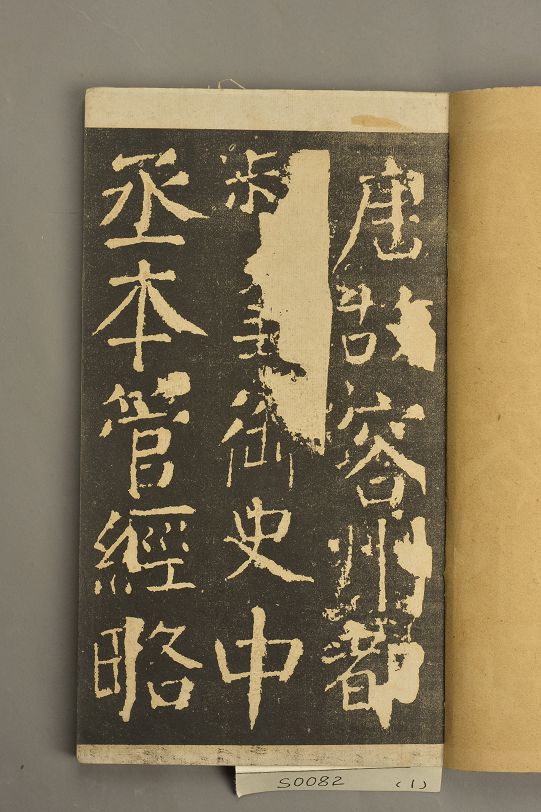 唐故容州都
御史中
丞本管經略
S0082 (1)